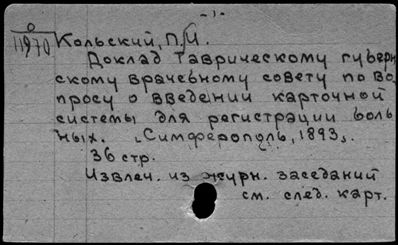 - 1 -
0
11970
Кольский, П.И.
Доклад Таврическому губерн
скому врачебному совету по во
просу о введении карточной
системы для регистрации боль
ных. [Симферополь, 1893].
36 стр.
Извлеч. из журн. заседаний
см. след. карт.